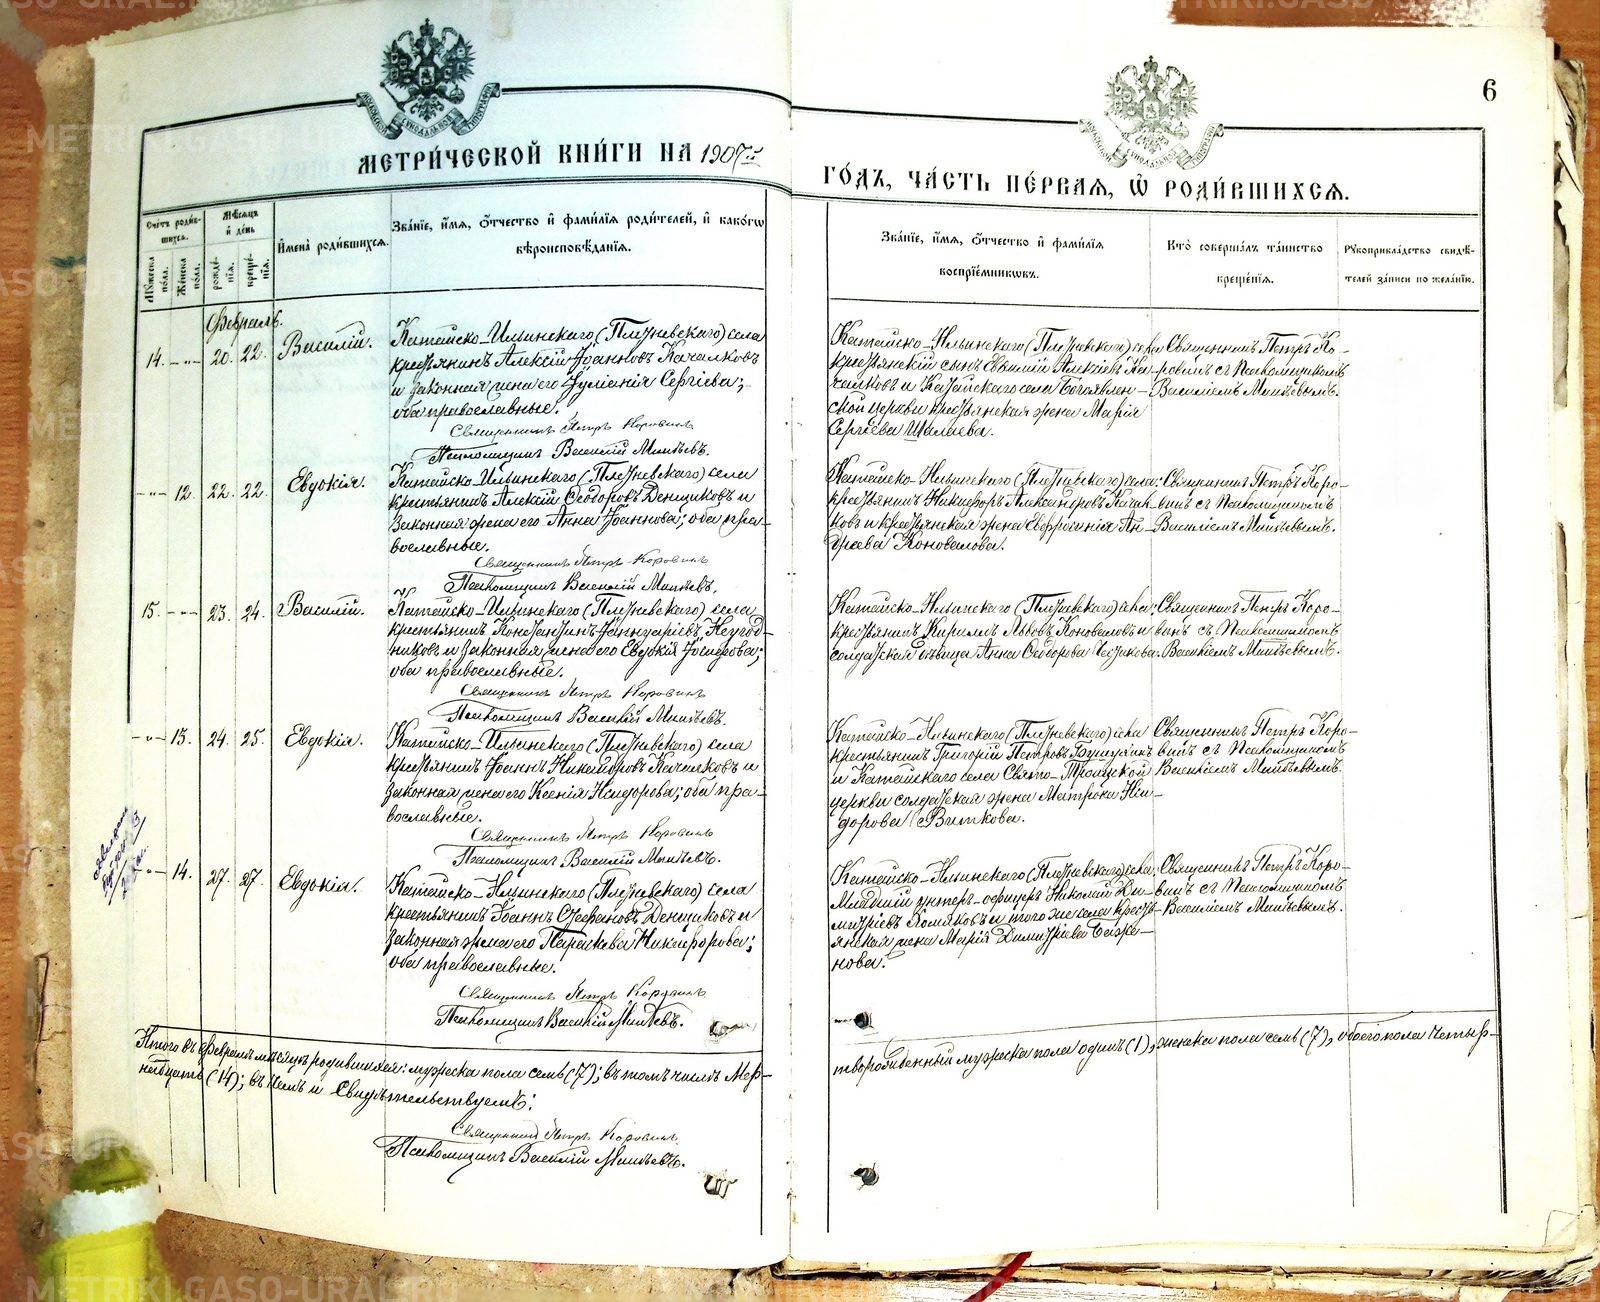 METRIKI.GASO-URAL.RU
6
МЕТРИ́ЧЕСКОЙ КНИ́ГИ НА 1907й
ГО́ДЪ, ЧА́СТЬ ПЕ́РВАЯ, Ѡ РОДИ́ВШИХСЯ.
Сче́тъ роди́вшихся.
Му́жеска по́ла.
Же́нска по́ла.
Мѣ́сяцъ и де́нь
рожде́нїя.
креще́нїя.
И҆мена̀ роди́вшихся.
Зва́нїе, и҆́мя, ѻ҆́тчество и҆ фами́лїя роди́телей, и҆ како́гѡ
вѣроисповѣ́данїя.
Зва́нїе, и҆́мя, ѻ҆́тчество и҆ фами́лїя
воспрїе́мникѡвъ.
Кто̀ соверша́лъ та́инство
креще́нїя.
Рꙋкоприкла́дство свидѣ́-
телей за́писи по жела́нїю.
Февраль.
14. –„– 20. 22. Василій.
Катайско-Ильинскаго (Плотневскаго) села
крестьянинъ Алексій Іоанновъ Качалковъ
и законная жена его Іуліанія Сергіева;
оба православные.
Священникъ Петръ Коровинъ
Псаломщикъ Василій Матѣевъ.
Катайско-Ильинскаго села
крестьянскій сынъ Евѳимій Алексіевъ Ка-
чалковъ и Катайскаго села Богоявлен-
ской церкви крестьянская жена Марія
Сергіева Шалаева.
Священникъ Петръ Ко-
ровинъ съ Псаломщикомъ
Василіемъ
–„– 12. 22. 22. Евдокія.
Катайско-Ильинскаго села
крестьянинъ Алексій Ѳеодоровъ Денщиковъ и
законная жена его Анна Іоаннова; оба пра-
вославные.
Священникъ Петръ Коровинъ
Псаломщикъ Василій
Катайско-Ильинскаго села:
крестьянинъ Никифоръ Александровъ
и крестьянская жена Евфросинія Ан-
дреева Коновалова.
Священникъ Петръ Коро-
винъ съ Псаломщикомъ
Василіемъ
15. –„– 23. 24. Василій.
Катайско-Ильинскаго села
крестьянинъ Константинъ Іаннуаріевъ Неугод-
никовъ и законная жена его Евдокія Іосифова;
оба православные.
Священникъ Петръ Коровинъ
Псаломщикъ Василій
Катайско-Ильинскаго села:
крестьянинъ Кириллъ Львовъ Коноваловъ и
солдатская дѣвица Анна Ѳеодорова
Священникъ Петръ Коро-
винъ съ Псаломщикомъ
Василіемъ
–„– 13. 24. 25. Евдокія.
Катайско-Ильинскаго села
крестьянинъ Іоаннъ Никифоровъ Качалковъ и
законная жена его Ксенія Исидорова; оба пра-
вославные.
Священникъ Петръ Коровинъ
Псаломщикъ Василій
Катайско-Ильинскаго села
крестьянинъ Григорій Петровъ
и Катайскаго села Свято-Троицкой
церкви солдатская жена Матрона Иси-
дорова Виткова.
Священникъ Петръ Коро-
винъ съ Псаломщикомъ
Василіемъ
–„– 14. 27. 27. Евдокія.
Катайско-Ильинскаго села
крестьянинъ Іоаннъ Стефановъ Денщиковъ и
законная жена его Параскева Никифорова;
оба православные.
Священникъ Петръ Коровинъ
Псаломщикъ Василій
Катайско-Ильинскаго села:
Младшій унтеръ-офицеръ Николай Ди-
митріевъ Хомяковъ и того же села кресть-
янская жена Марія Димитріева Бажe-
нова.
Священникъ Петръ Коро-
винъ съ Псаломщикомъ
Василіемъ
Итого въ Февралѣ мѣсяцѣ родившихся: мужеска пола семь (7); въ томъ числѣ мер-
творожденный мужеска пола одинъ (1), женска пола семь (7), обоего пола четыр-
надцать (14); въ чемъ и свидѣтельствуемъ:
Священникъ Петръ Коровинъ
Псаломщикъ Василій